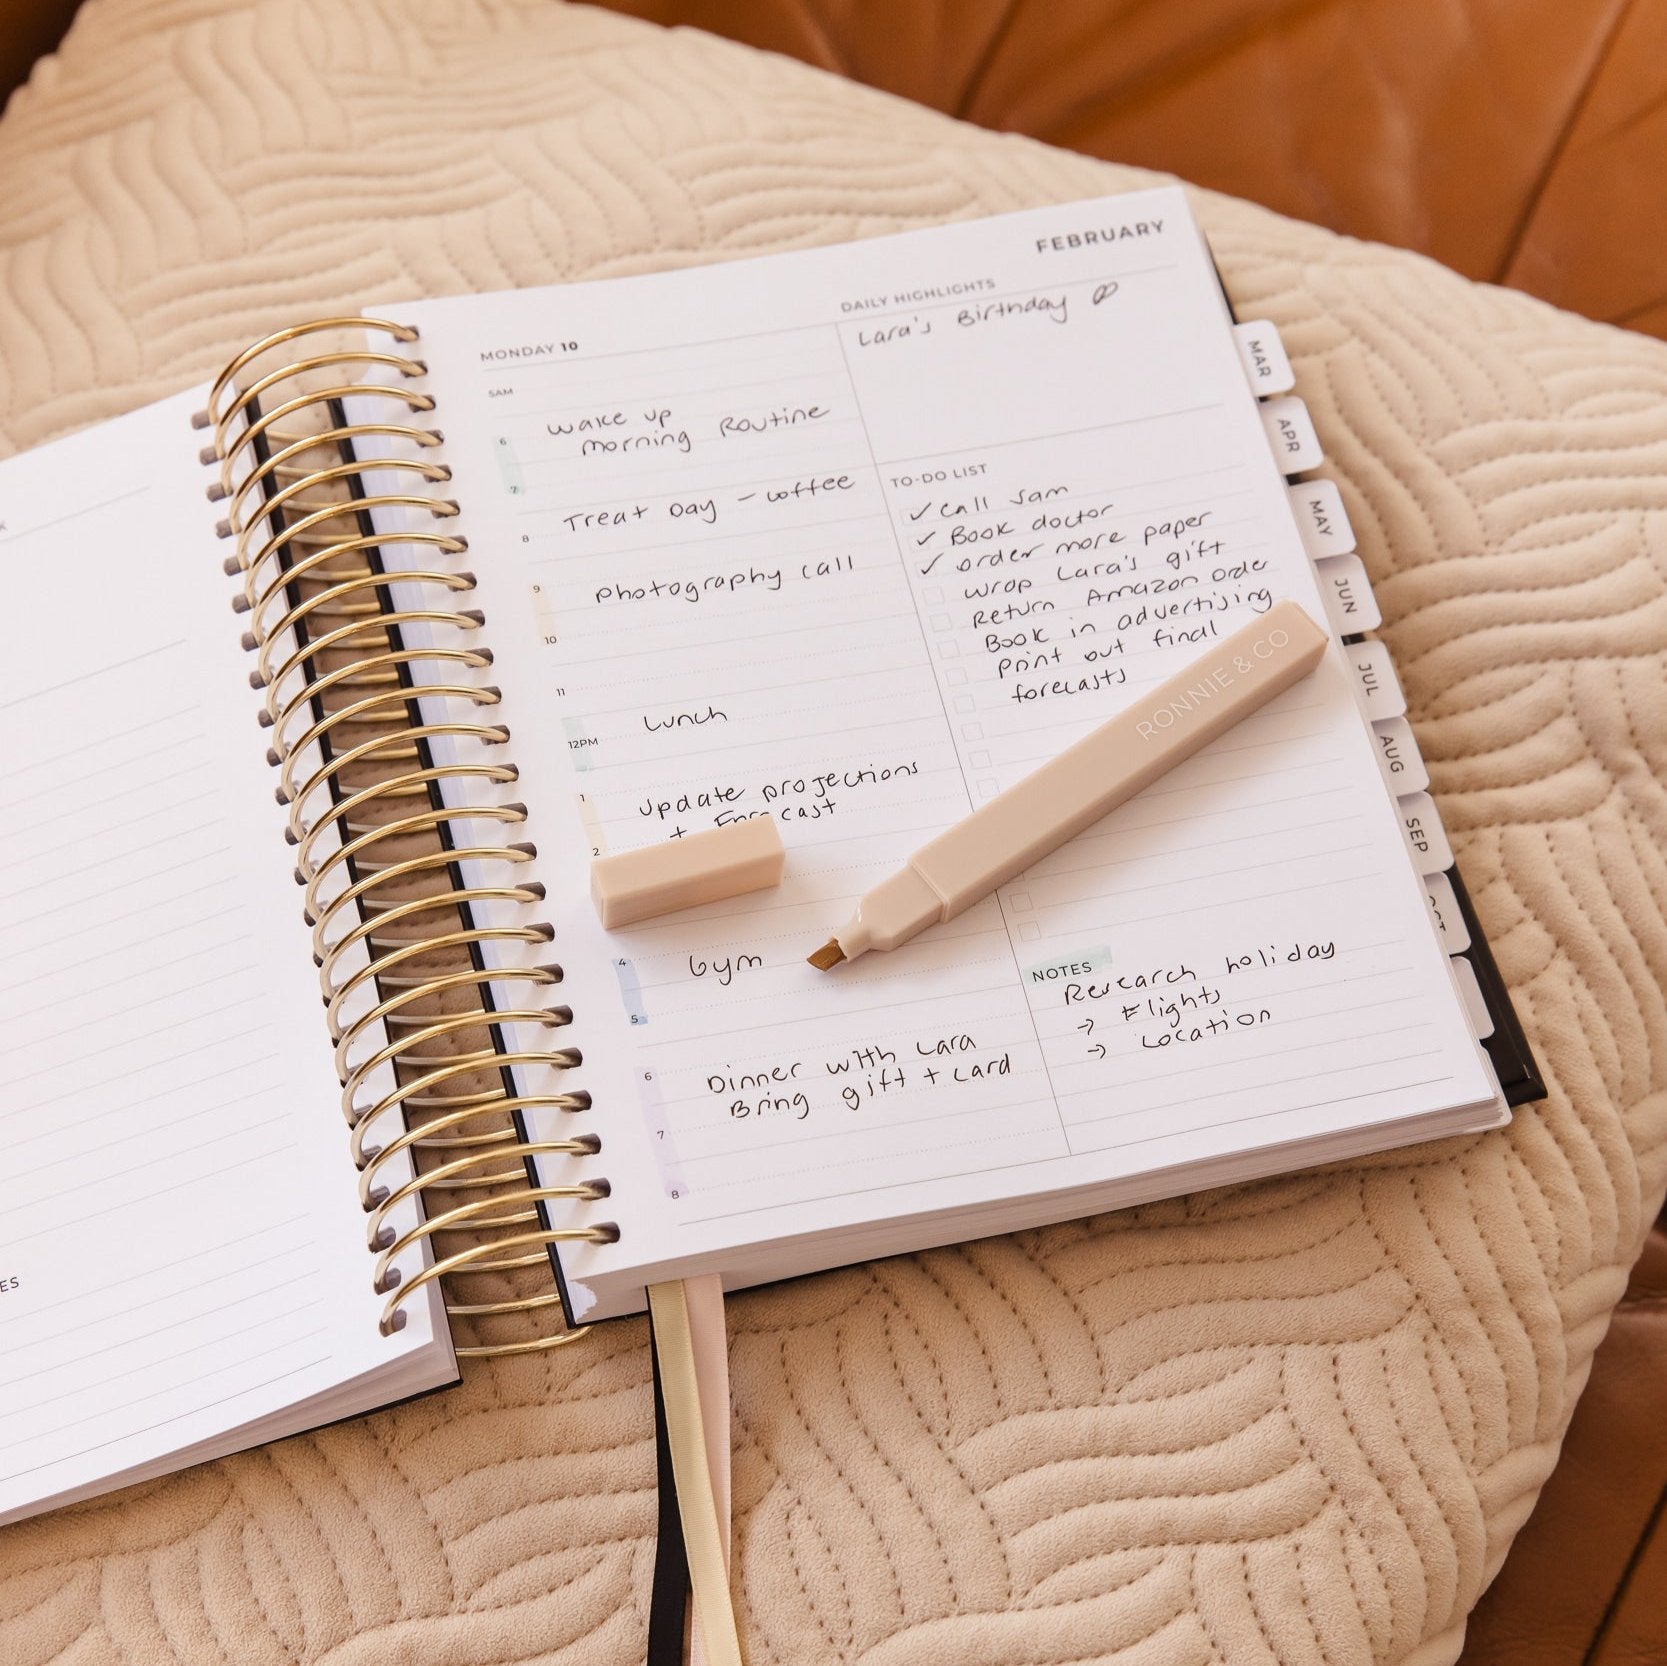 ES
FEBRUARY
MONDAY 10
5AM
6
wake up
morning Routine
7
Treat Day - coffee
8
9
photography call
10
11
Lunch
12PM
1
update projections
+ Forecast
2
4
Gym
5
6
Dinner with Lara
Bring gift + card
7
8
DAILY HIGHLIGHTS
Lara's Birthday
TO-DO LIST
✓ call Sam
✓ Book doctor
✓ order more paper
wrap Lara's gift
Return Amazon order
Book in advertising
print out final
forecasts
NOTES
Research holiday
→ Flights
→ Location
RONNIE & CO
MAR
APR
MAY
JUN
JUL
AUG
SEP
OCT